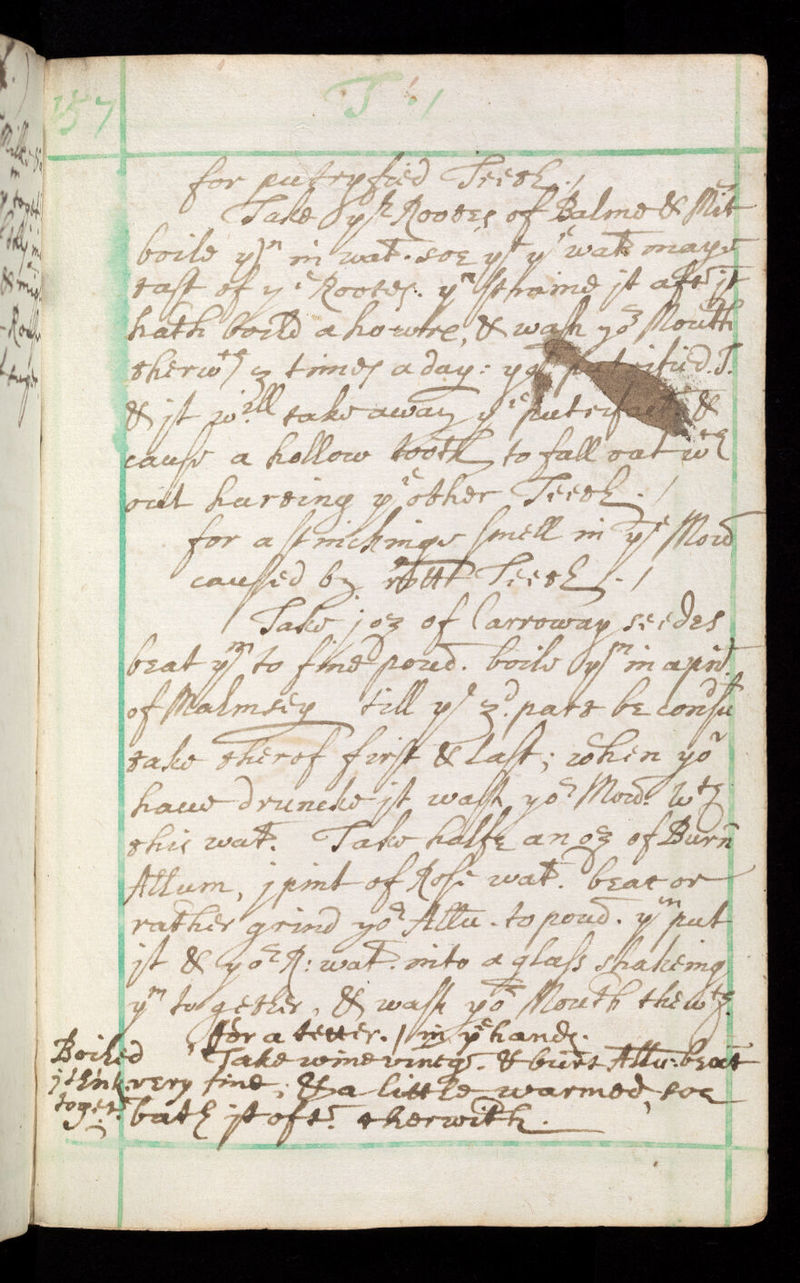 157
T :/
for putryfied Teeth ./
Take yͤ Rootes of Balme & Mīt
boile yᵐ in wat̄. soe yᵗ yͤ wat̄ maye
tast of yͤ Rootes. yⁿ straine jt aft̄ jt
hath boild a howre, & wash yoʳ Mouth
therwᵗʰ 3 times a day: yᵗ putrifid. T.
& jt will take away yͤ putrifact: &
cause a hollow tooth to fall oat wᵗʰ
out hurting yͤ other Teeth ./
for a stinckinge smell in yͤ Mou
caused by rott Teeth ./
Take j oz of Carroway seedes
beat yᵐ to fine poud. boile yᵐ in a pint
of Malmsey till yͤ 3ᵈ. part be consū
take therof first & last; when yoᵘ
haue druncke jt wash yoʳ Mou. wᵗʰ
this wat̄. Take halfe an oz of Burn̄
Allum, j pint of Rose wat̄. beat or
rather grind yoʳ Allu. to poud. yⁿ put
jt & yoʳ R: wat̄. into a glass shakeing
yᵐ together, & wash yoʳ Mouth thewᵗʰ.
for a tetter. / in yͤ hands.
Take wine vineg. & burt Allu: beat
very fine; & a little warmed, soe
bath jt oftⁿ. therwith.
Boiled
toget̄.